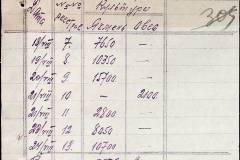 №№ Культура 305
Ячмень Овес
19/VIII 7. 7650 —
19/VIII 8. 10350 —
20/VIII 9 15700 —
21/VIII 10 — 2100
21/VIII 11 2800 —
23/VIII 12 8050 —
24/VIII 13. 10700 —